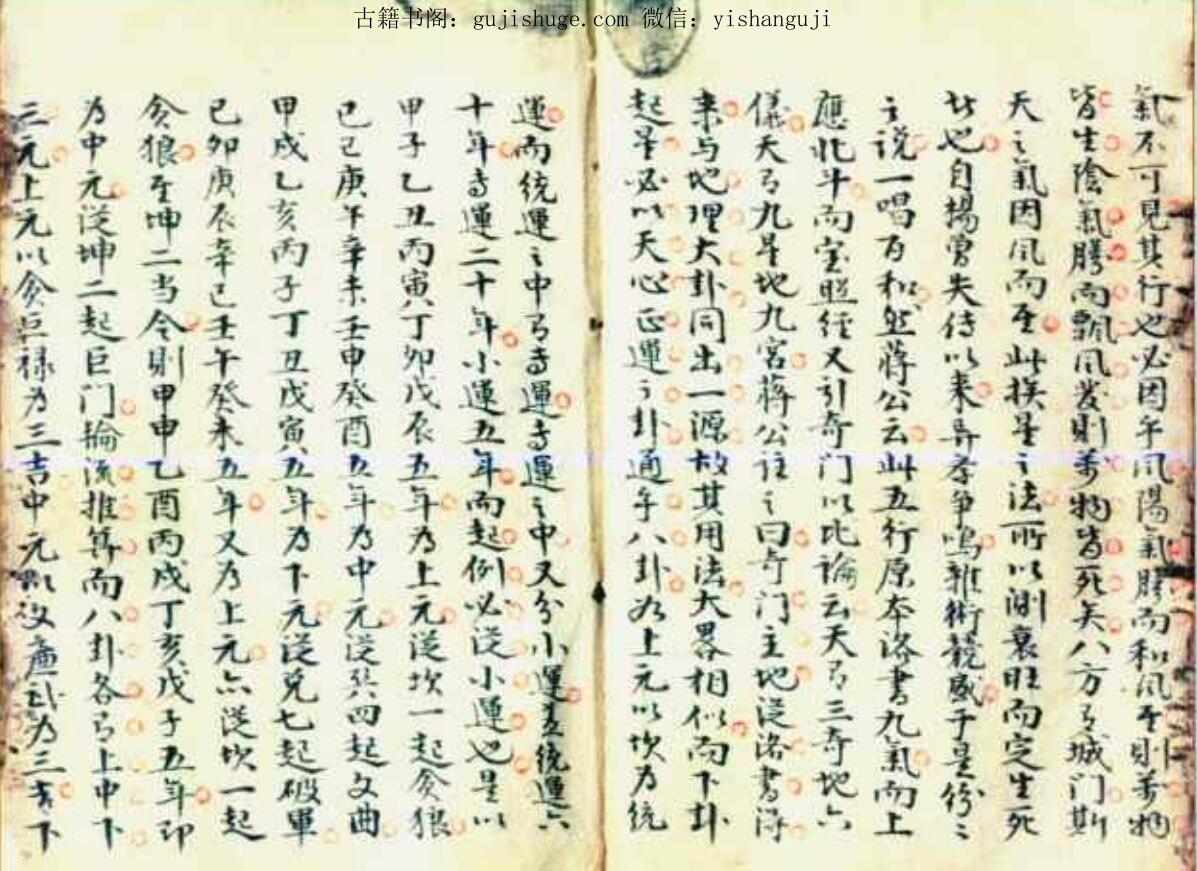 古籍书阁：gujishuge.com 微信：yishanguji
氣不可見其行也必因乎風陽氣騰而和風至則萬物
皆生陰氣騰而飄風發則萬物皆死矣八方有城门斯
天之氣因風而至此挨星之法所以測衰旺而定生死
此也自揚曾失传以来异学争鳴雜術競盛于是紛之
之说一唱百和然蒋公云此五行原本洛書九氣而上
應北斗而宝照经又引奇门以比論云天有三奇地六
儀天有九星地九宮蒋公注之曰奇门主地従洛書淂
来与地理大卦同出一源故其用法大畧相似而下卦
起星必以天心正運之卦通乎八卦如上元以坎为统
運而统運之中有専運専運之中又分小運盖统運六
十年専運二十年小運五年而起例必従小運也是以
甲子乙丑丙寅丁卯戊辰五年为上元従坎一起贪狼
己巳庚午辛未壬申癸酉五年为中元従巽四起文曲
甲戌乙亥丙子丁丑戊寅五年为下元従兑七起破軍
己卯庚辰辛巳壬午癸未五年又为上元亦従坎一起
贪狼至坤二当令則甲申乙酉丙戌丁亥戊子五年卯
为中元従坤二起巨门掄流推算而八卦各有上中下
三元上元以贪巨禄为三吉中元以文廉武为三吉下